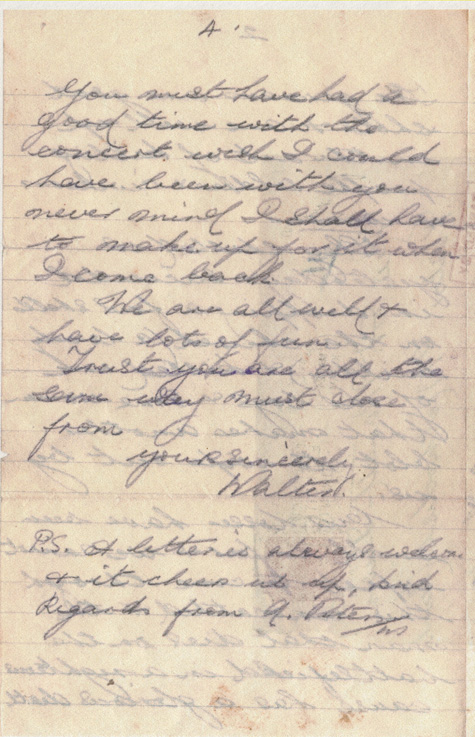 4.
You must have had a
good time with the
concert, wish I could
have been with you
never mind I shall have
to make up for it when
I come back.
We are all well &
have lots of fun.
Trust you are all the
same way must close
from
yours sincerely
Walter.
P.S. A letter is always welcome
& it cheers us up, kind
Regards from A.